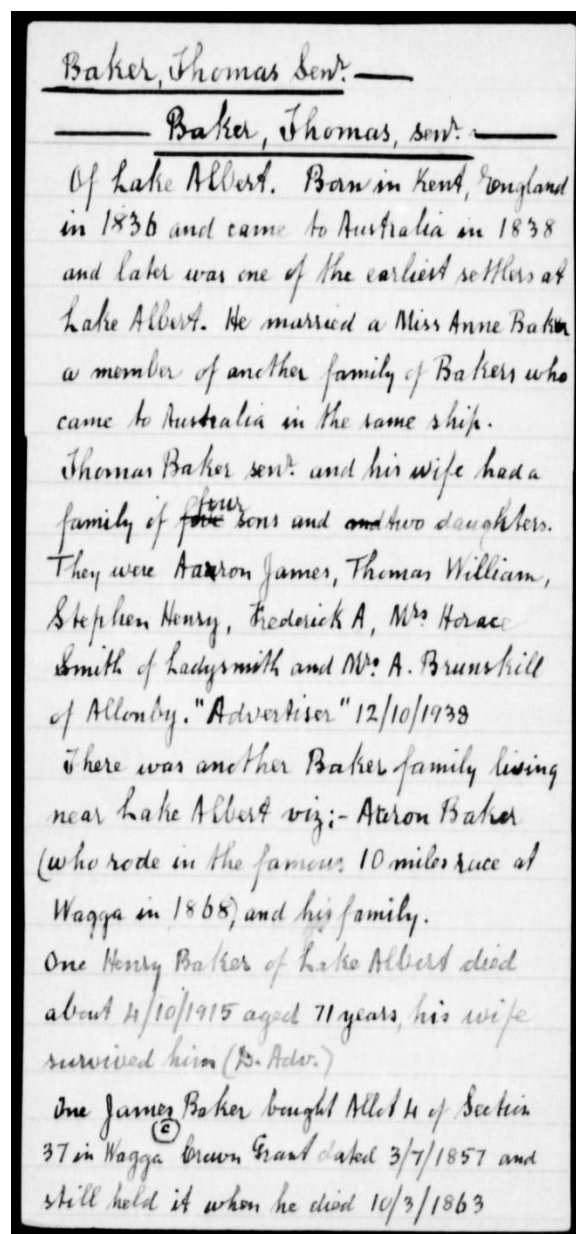 Baker, Thomas Senr.
Baker, Thomas, senr.
Of Lake Albert. Born in Kent, England
in 1836 and came to Australia in 1838
and later was one of the earliest settlers at
Lake Albert. He married a Miss Anne Baker
a member of another family of Bakers who
came to Australia in the same ship.
Thomas Baker senr. and his wife had a
family of four sons and two daughters.
They were Aaron James, Thomas William,
Stephen Henry, Frederick A, Mrs Horace
Smith of Ladysmith and Mrs A. Brunskill
of Allonby. "Advertiser" 12/10/1938
There was another Baker family living
near Lake Albert viz:- Aaron Baker
(who rode in the famous 10 miles race at
Wagga in 1868) and his family.
One Henry Baker of Lake Albert died
about 4/10/1915 aged 71 years, his wife
survived him (D. Adv.)
One James Baker bought Allot 4 of Section
37 in Wagga Crown Grant dated 3/7/1857 and
still held it when he died 10/3/1863